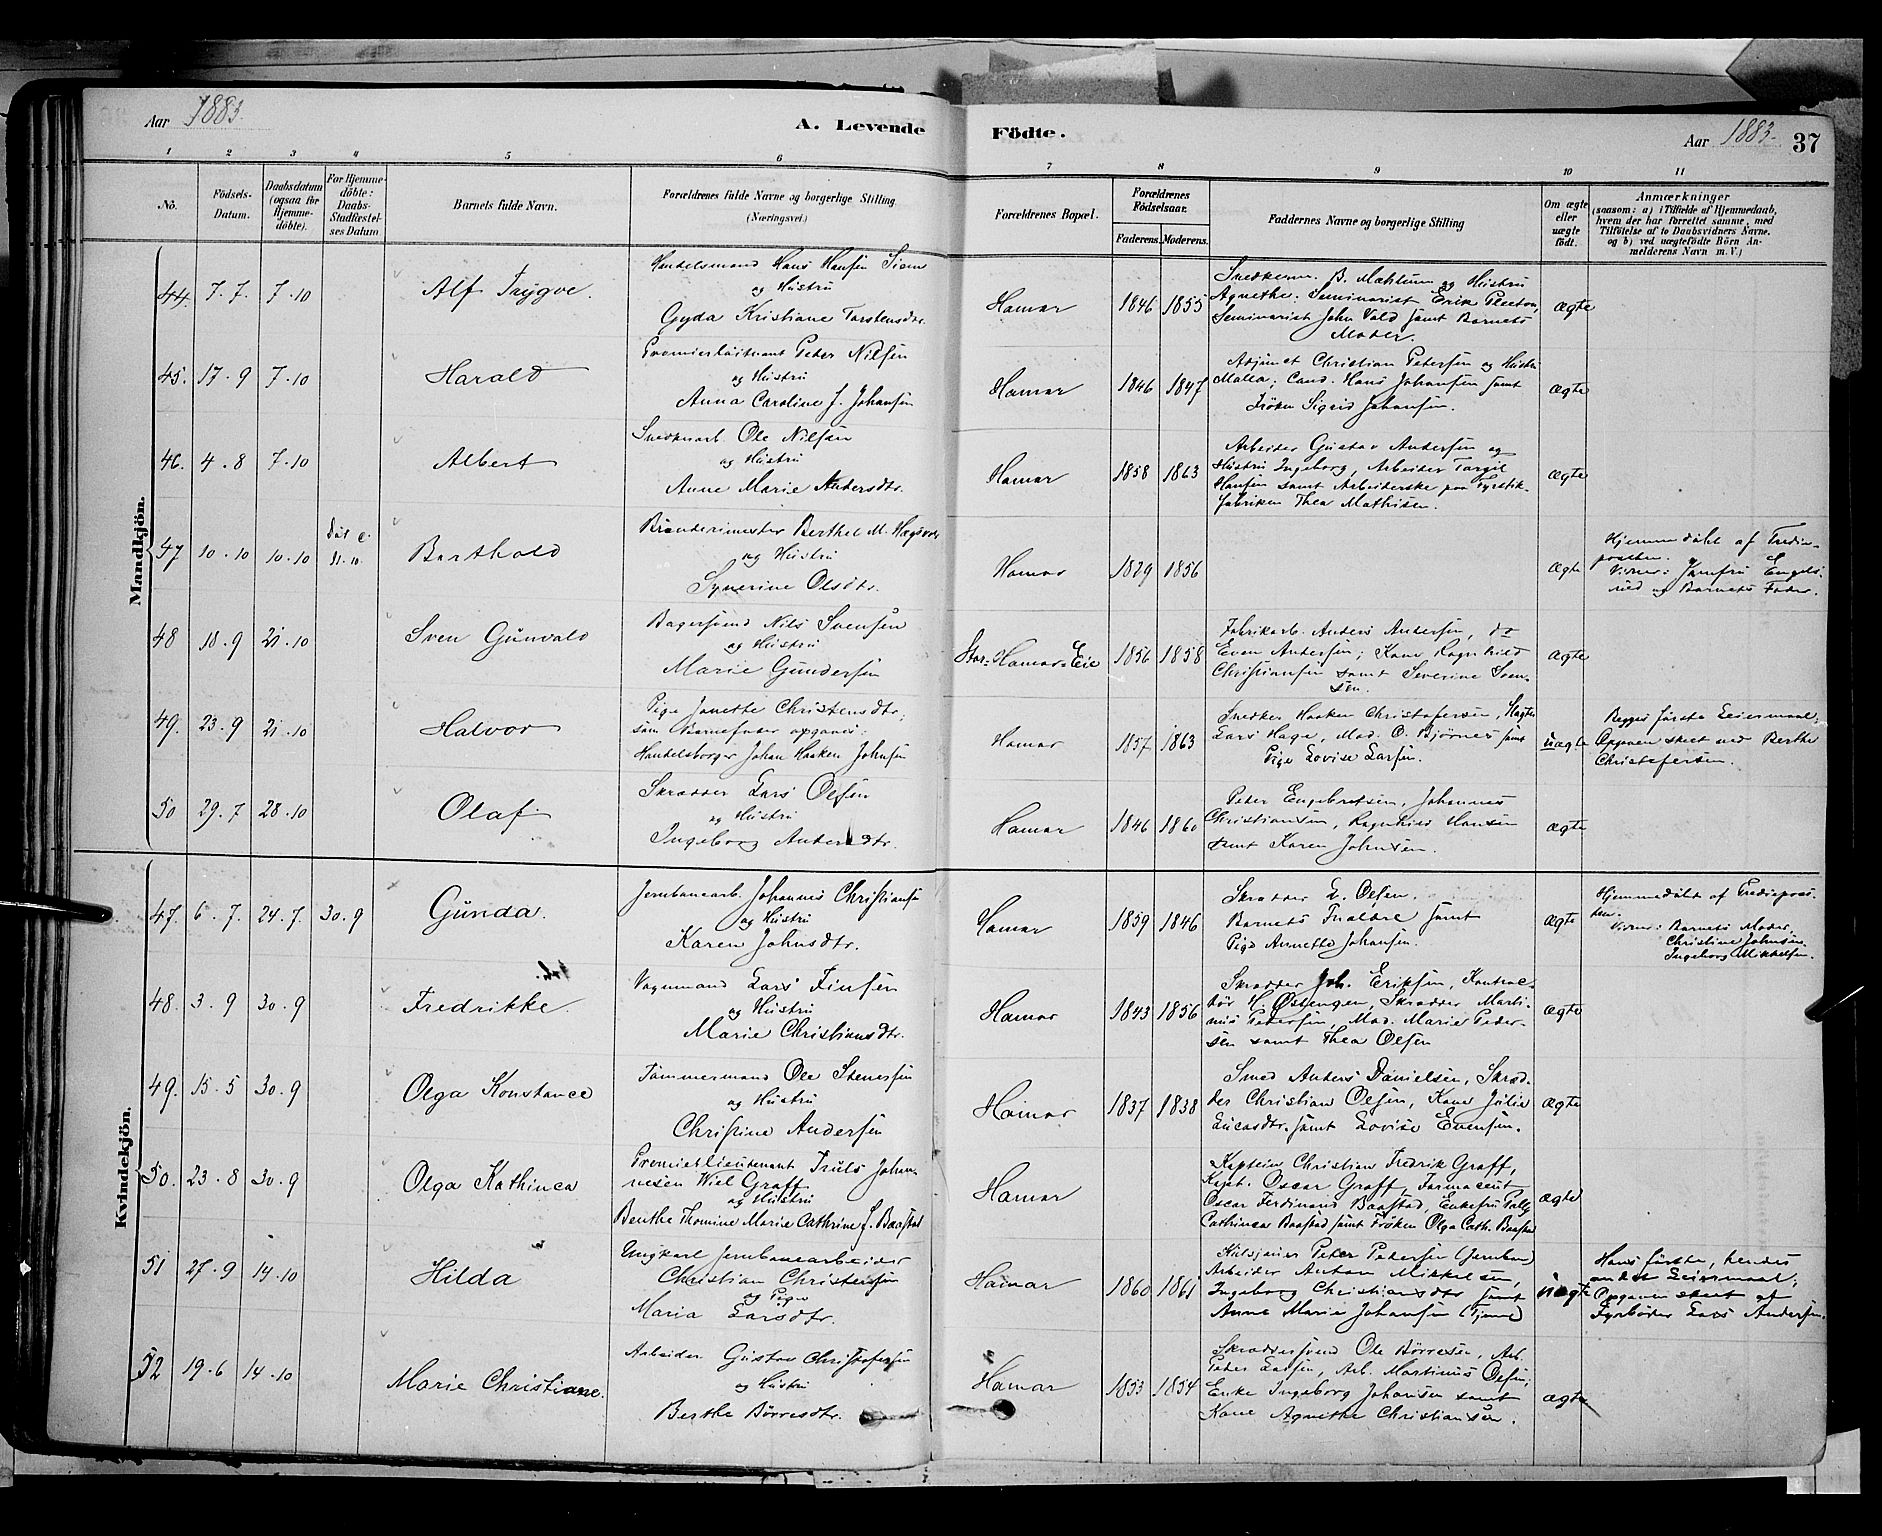 Aar 1883. A. Levende Födte. Aar 1883. 37
1 2 3 4 5 6 7 8 9 10 11
No.
Födsels-Datum.
Daabsdatum (ogsaa for Hjemme-döbte).
For Hjemme-döbte: Daabs-Stadfæstel-ses Datum
Barnets fulde Navn.
Forældrenes fulde Navne og borgerlige Stilling (Næringsvei.)
Forældrenes Bopæl.
Forældrenes Födselsaar.
Faderens. Moderens.
Faddernes Navne og borgerlige Stilling
Om ægte eller uægte födt.
Anmærkninger
(saasom: a) i Tilfælde af Hjemmedaab, hvem der har forrettet samme, med Tilföielse af to Daabsvidners Navne. og b) ved uægtefödte Börn An-melderens Navn m. V.)
Mandkjön.
44. 7.7. 7.10 Alf Trygve.
Handelsmand Hans Hansen
og Hustru
Gyda Kristiane Torstensdtr.
Hamar 1846 1855
Snedkerm. B. Mæhlum og Hustru
Agnethe. Seminarist Erik
Seminarist John Vold samt Barnets
Moder.
ægte
45. 17.9 7.10 Harald
Premierløitnant Peter Nilsen
og Hustru
Anna Caroline J. Johansen
Hamar 1846 1847
Adjunct Christian Petersen og Hustru
Malla; Cand. Hans Johansen samt
Frøken Sigrid Johansen.
ægte
46. 4.8 7.10 Albert
Snedkerarb. Ole Nilsen
og Hustru
Anne Marie Andersdtr.
Hamar 1858 1863
Arbeider Gustav Andersen og
Hustru Ingeborg, Arbeider Torgil
Hansen samt Arbeiderske paa Fyrstik-
fabriken Thea Mathisen.
ægte
47 10.10 10.10 Død 11.10. Berthold
Brænderimester Berthel M.
og Hustru
Synerine Olsdtr.
Hamar 1829 1856
ægte
Hjemmedøbt af Stedsp-
Vidner: Jomfru Engels-
rud og Barnets Fader.
48 18.9 21.10 Sven Gunvald
Bagersvend Nils Svensen
og Hustru
Marie Gundersen
Stor-Hamar-Eie 1856 1858
Fabrikarb. Anders Andersen, do
Even Andersen; Kone Ragnhild
Christiansen samt Severine Sven-
sen.
ægte
49. 23.9 21.10 Halvor
Pige Janette Christensdtr;
som Barnefader opgivet:
Handelsborger Johan Haaken Johnsen
Hamar 1857 1863
Snedker Haaken Christofersen, Slagter
Lars Hage, Mad. O. Bjørnes samt
Pige Lovise Larsen.
uægte
Begges første Leiermaal.
Opgaven skeet ved Berthe
Christofersen.
50 29.7 28.10 Olaf
Skrædder Lars Olsen
og Hustru
Ingeborg Andersdtr.
Hamar 1846 1860
Peder Engebretsen, Johannes
Christiansen, Ragnhild Hansen
samt Karen Johnsen.
ægte
Kvindekjön.
47. 6.7. 24.7. 30.9 Gunda.
Jernbanearb. Johannes Christiansen
og Hustru
Karen Johnsdtr.
Hamar 1859 1846
Skrædder L. Olsen.
Barnets Forældre samt
Pige Annette Johansen.
ægte
Hjemmedøbt af
Vidner: Barnets Moder,
Christine Johnsen
Ingeborg Mikkelsen.
48. 3.9 30.9 Fredrikke.
Vognmand Lars Finsen
og Hustru
Marie Christiansdtr.
Hamar 1843 1856
Skrædder Joh. Eriksen, Kontrol-
lør H. Østengen, Skrædder Marti-
nus Petersen, Mad. Marie Peder-
sen samt Thea Olsen
ægte
49. 15.5 30.9 Olga Konstance
Tømmermand Ole Stenersen
og Hustru
Christine Andersen
Hamar 1837 1838
Smed Anders Danielsen, Skræd-
der Christian Olsen, Kone Julie
Lucasdtr. samt Lovise Evensen.
ægte
50. 23.8 30.9 Olga Kathinca
Premierlieutenant Truls Johan-
nesen Wiel Graff
og Hustru
Benthe Thomine Marie Cathrine f. Baastad
Hamar
Kaptein Christian Fredrik Graff,
Kapt. Oscar Graff, Farmaceut
Oscar Ferdinand Baastad, Enkefru
Cathinca Baastad samt Frøken Olga Cath. Baastad
ægte
51 27.9 14.10 Hilda
Ungkarl Jernbanearbeider
Christian Christensen
og Pige
Maria Larsdtr.
Hamar 1860 1861
Peter Petersen (Jernban)
Arbeider Anton Mikkelsen,
Ingeborg Christiansdtr samt
Anne Marie Johansen (Tjener)
uægte
Hans første, hendes
andet Leiermaal;
Opgaven skeet af
Fyrbøder Lars Andersen.
52 19.6 14.10 Marie Christiane.
Arbeider Gustav Christofersen
og Hustru
Berthe Børresdtr.
Hamar 1853 1854
Skræddersvend Ole Børresen, Arb.
Peder Larsen, Arb. Martinus Olsen;
Enke Ingeborg Johansen samt
Kone Agnethe Christiansen.
ægte